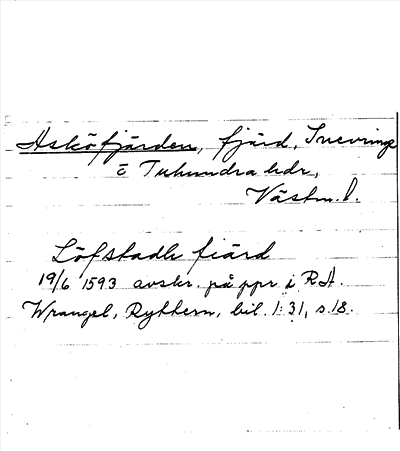 Asköfjärden, fjärd, Snevringe
o Tuhundra hdr,
Västm. l.
Löfstadh fiärd
19/6 1593 avskr. på ppr i RA.
Wrangel, Rytthern, bil. 1:31, s. 18.